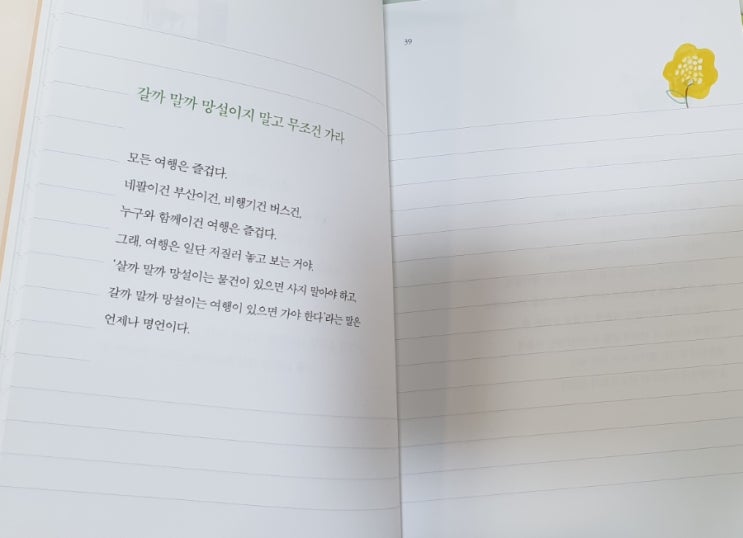 갈까 말까 망설이지 말고 무조건 가라
모든 여행은 즐겁다.
네팔이건 부산이건, 비행기건 버스건,
누구와 함께이건 여행은 즐겁다.
그래, 여행은 일단 저질러 놓고 보는 거야.
'살까 말까 망설이는 물건이 있으면 사지 말아야 하고,
갈까 말까 망설이는 여행이 있으면 가야 한다'라는 말은
언제나 명언이다.
39